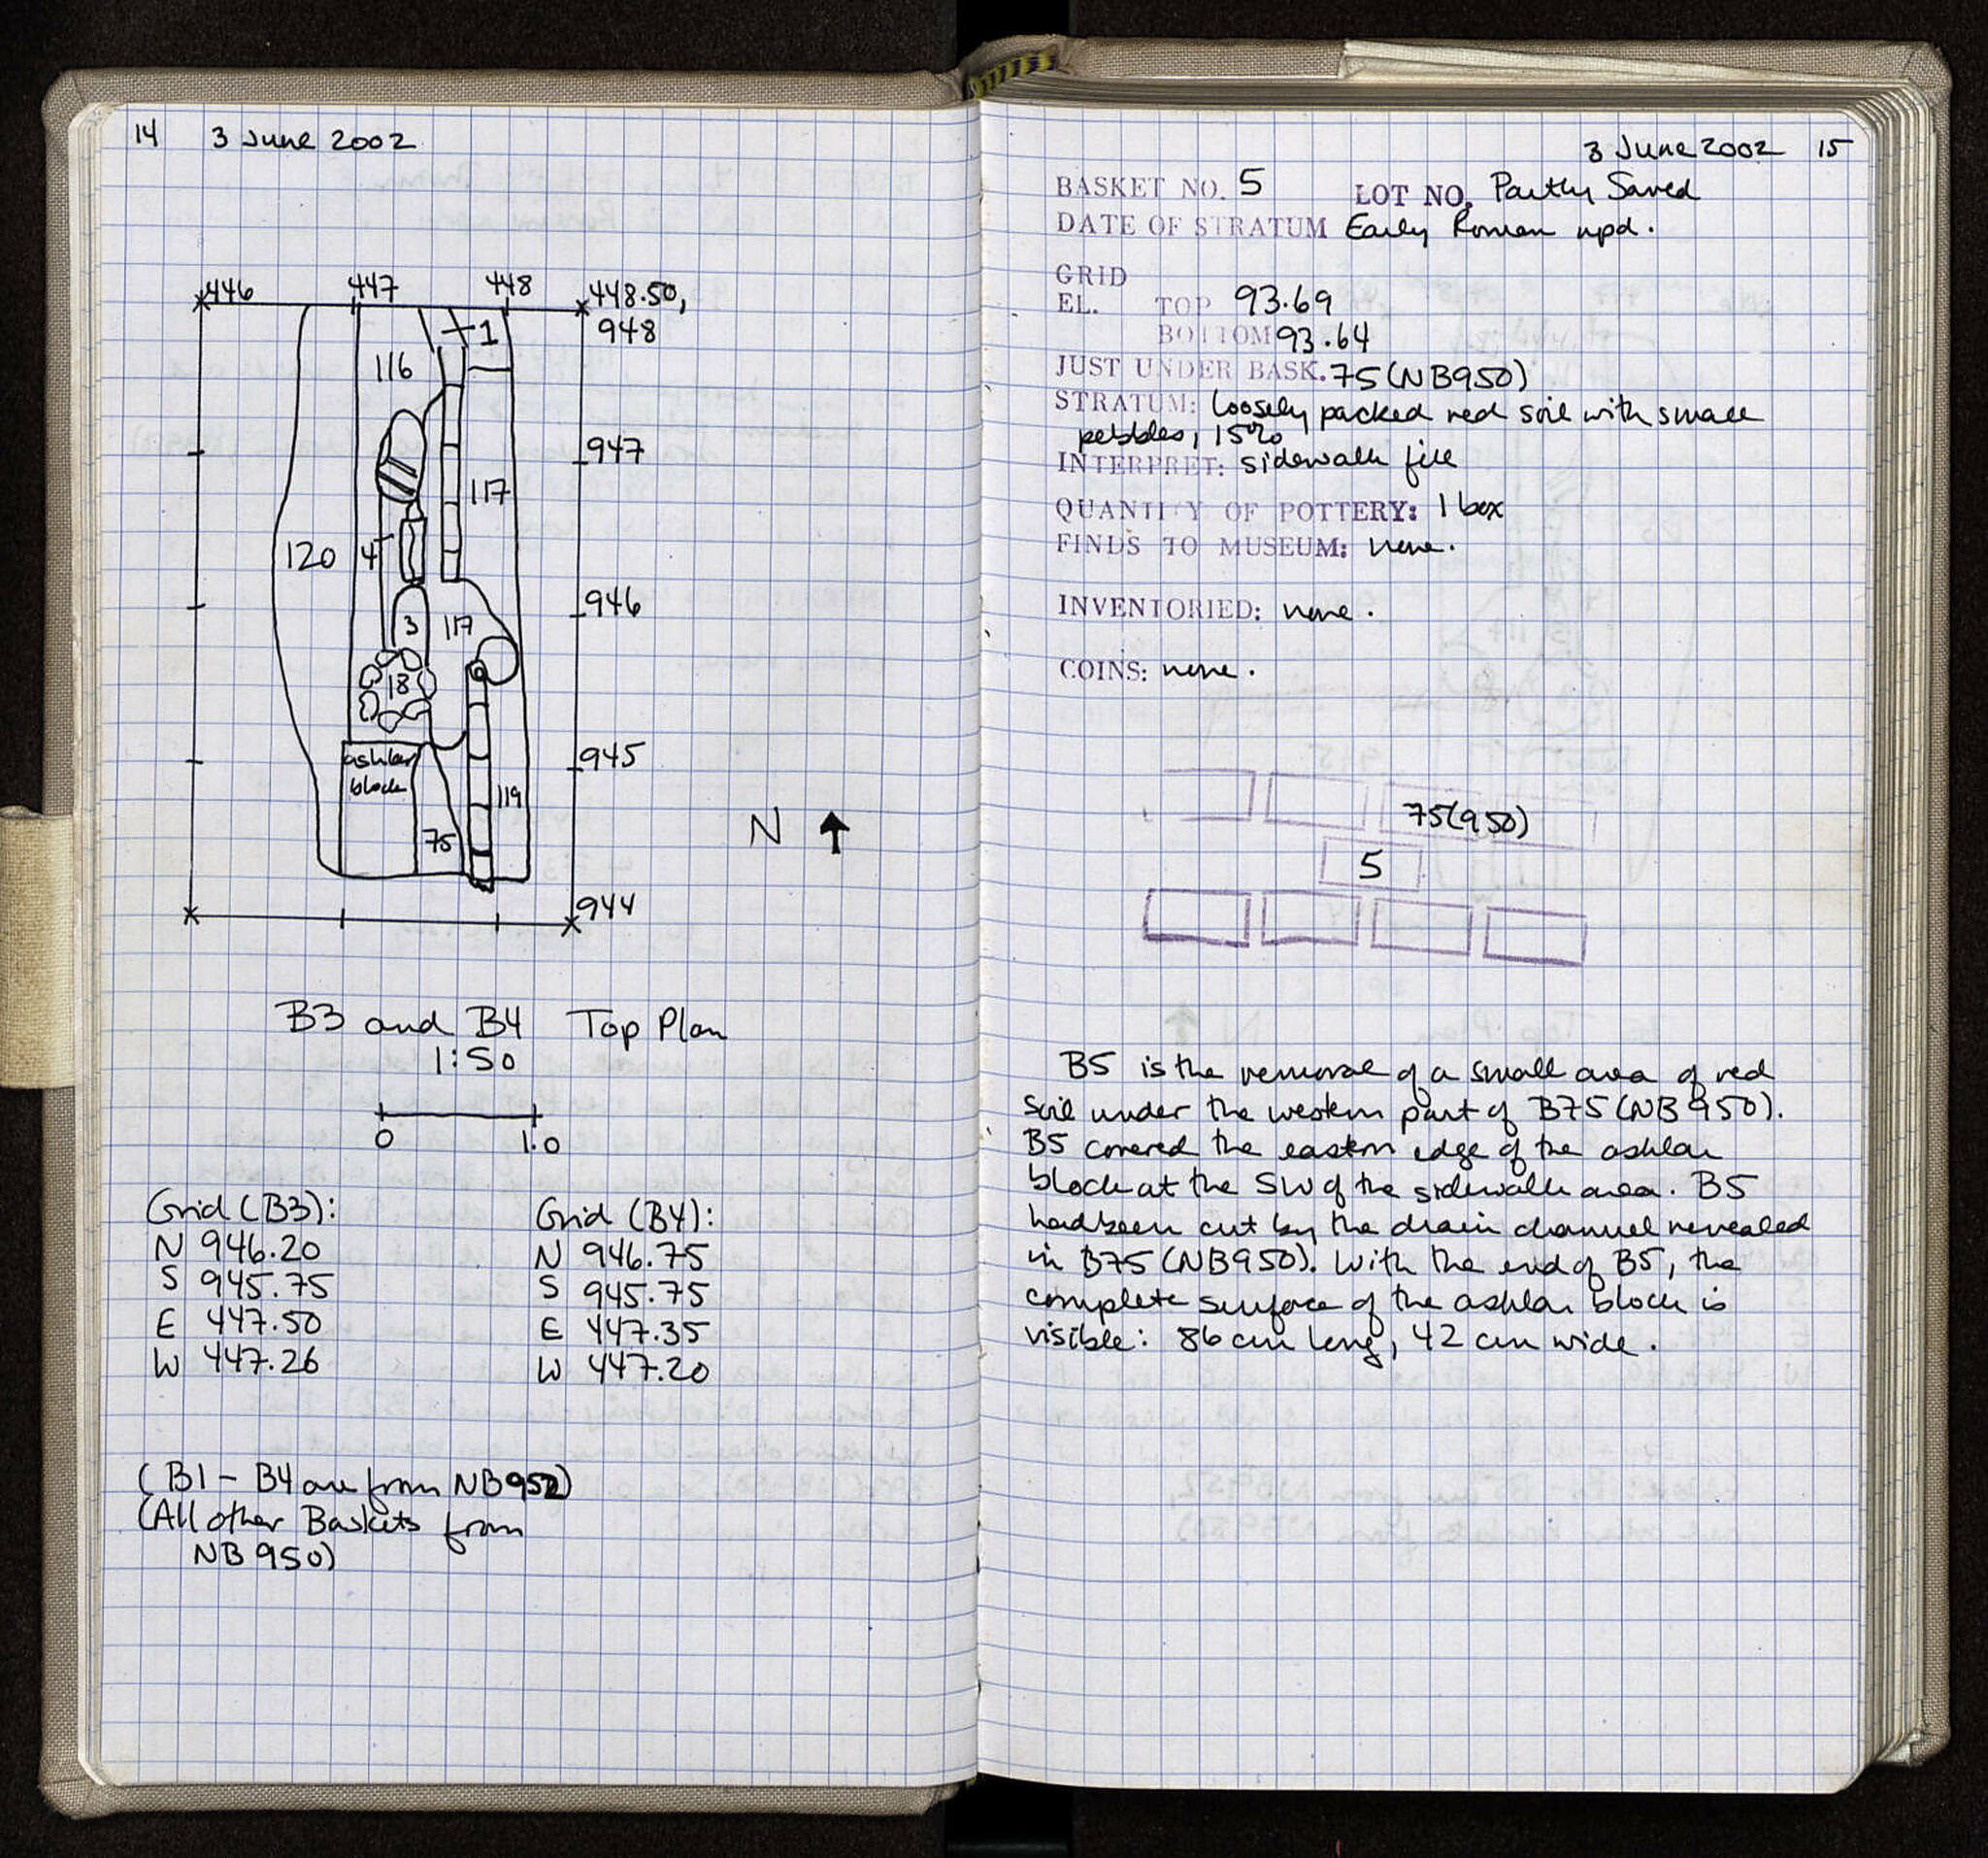 14 3 June 2002
446 447 448 448.50,
948
1
116
947
117
120 4
946
3 117
18
945
ashlar
block
119
75
N
944
B3 and B4 Top Plan
1:50
0 1.0
Grid (B3):
N 946.20
S 945.75
E 447.50
W 447.26
Grid (B4):
N 946.75
S 945.75
E 447.35
W 447.20
(B1 - B4 are from NB952)
(All other Baskets from
NB 950)
3 June 2002 15
BASKET NO. 5 LOT NO. Partly Saved
DATE OF STRATUM Early Roman npd.
GRID
EL. TOP 93.69
BOTTOM 93.64
JUST UNDER BASK. 75 (NB950)
STRATUM: loosely packed red soil with small
pebbles, 15%
INTERPRET: sidewalk fill
QUANTITY OF POTTERY: 1 box
FINDS TO MUSEUM: none.
INVENTORIED: none.
COINS: none.
75(950)
5
B5 is the removal of a small area of red
soil under the western part of B75 (NB950).
B5 covered the eastern edge of the ashlar
block at the SW of the sidewalk area. B5
had been cut by the drain channel revealed
in B75 (NB950). With the end of B5, the
complete surface of the ashlar block is
visible: 86 cm long, 42 cm wide.